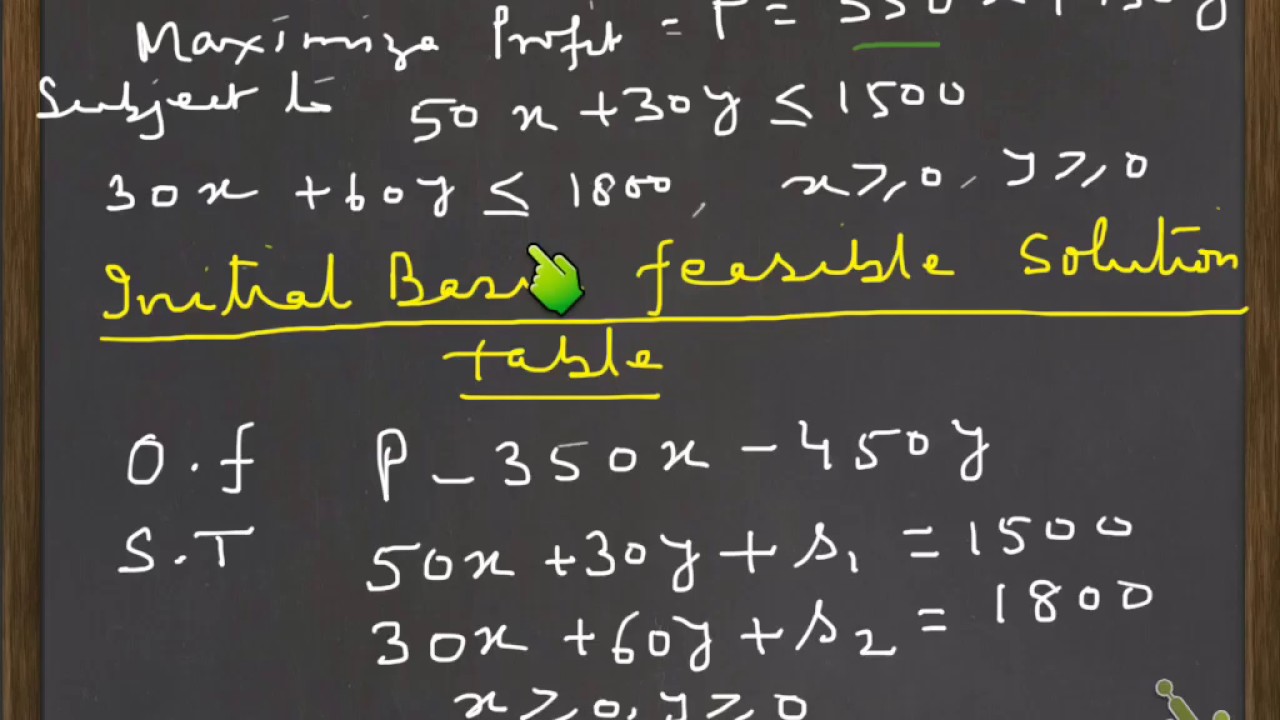 Maximize Profit = P = 350x + 450y
Subject to 50x + 30y ≤ 1500
30x + 60y ≤ 1800, x ≥ 0, y ≥ 0
Initial feasible Solution
table
O.f P - 350x - 450y
S.T 50x + 30y + s₁ = 1500
30x + 60y + s₂ = 1800
x ≥ 0, y ≥ 0